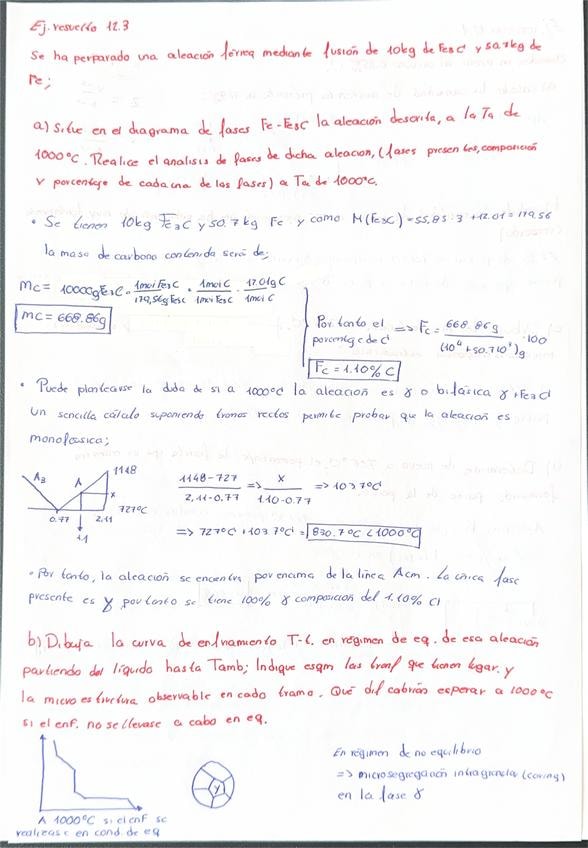 Ej. resuelto 12.3
Se ha perparado una aleación férrea mediante fusión de 10kg de Fe3C y 50.7kg de
Fe;
a) Situe en el diagrama de fases Fe-Fe3C la aleación descrita, a la Ta de
1000ºC. Realice el analisis de fases de dicha aleacion, (fases presentes, composición
y porcentaje de cada una de las fases) a Ta de 1000ºC.
• Se tienen 10kg Fe3C y 50.7 kg Fe y como M(Fe3C) = 55,85·3 +12.01 = 179,56
la masa de carbono contenida será de;
mc = 10000g Fe3C · 1mol Fe3C / 179,56g Fe3C · 1mol C / 1mol Fe3C · 12.01g C / 1mol C
mc = 668.86g
Por tanto el
porcentaje de C => Fc = 668.86g / (10⁴ + 50.7·10³)g · 100
Fc = 1.10% C
• Puede plantearse la duda de si a 1000ºC la aleación es γ o bifásica γ+Fe3C
Un sencillo cálculo suponiendo tramos rectos permite probar que la aleación es
monofásica;
A3 A 1148
x
727ºC
0.77 2,11
1.1
1148-727 / 2,11-0.77 => x / 1.10-0.77 => 103.7ºC
=> 727ºC + 103.7ºC = 830.7ºC < 1000ºC
• Por tanto, la aleación se encuentra por encima de la línea Acm. La única fase
presente es γ por tanto se tiene 100% γ composición del 1.10% C
b) Dibuja la curva de enfriamiento T-t. en régimen de eq. de esa aleación
partiendo del líquido hasta Tamb; Indique esqm las tranf que tienen lugar. y
la microestructura observable en cada tramo. Qué dif cabrían esperar a 1000ºC
si el enf. no se llevase a cabo en eq.
γ
A 1000ºC si el enf se
realizase en cond. de eq
En régimen de no equilibrio
=> microsegregación intragranular (coring)
en la fase γ